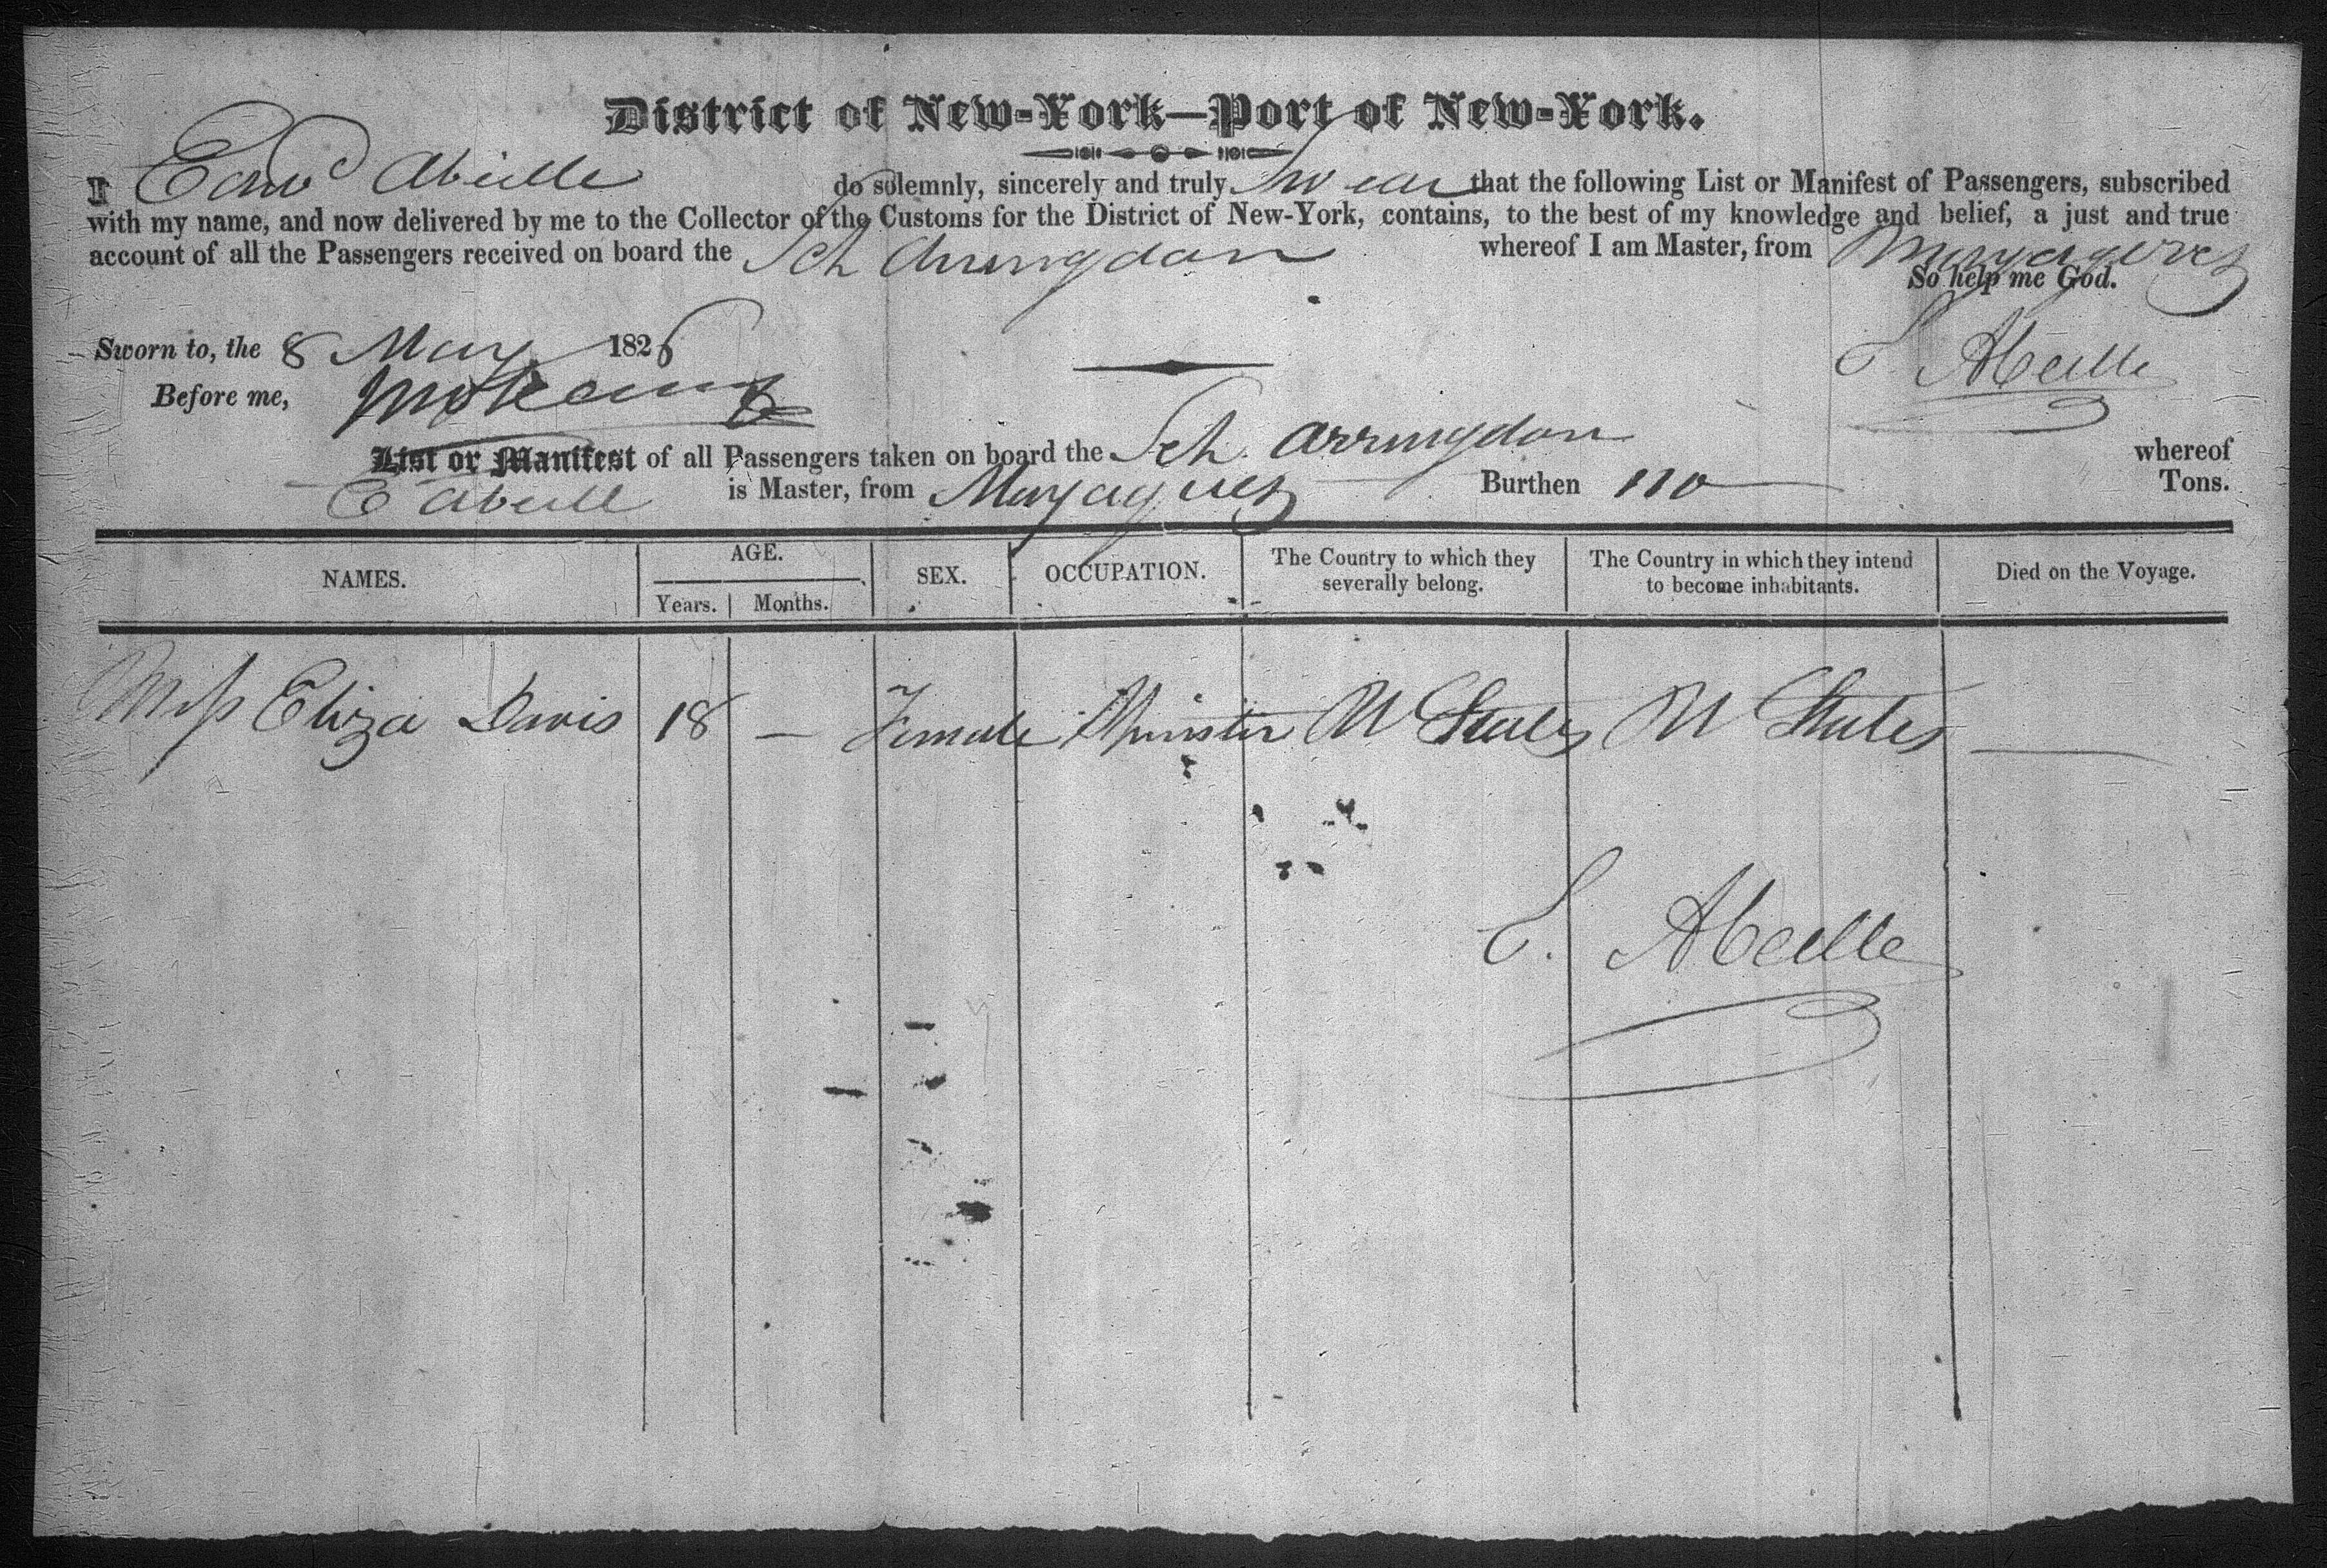 District of New-York—Port of New-York.
I Edwd Abeille do solemnly, sincerely and truly swear that the following List or Manifest of Passengers, subscribed
with my name, and now delivered by me to the Collector of the Customs for the District of New-York, contains, to the best of my knowledge and belief, a just and true
account of all the Passengers received on board the Sch Arringdon whereof I am Master, from Mayaguez
So help me God.
Sworn to, the 8 May 1826
E. Abeille
Before me,
List or Manifest of all Passengers taken on board the Sch. Arringdon whereof
E Abeille is Master, from Mayaguez Burthen 110 Tons.
NAMES. AGE. Years. Months. SEX. OCCUPATION. The Country to which they severally belong. The Country in which they intend to become inhabitants. Died on the Voyage.
Miss Eliza Davis 18 — Female Spinster U States U States —
E. Abeille